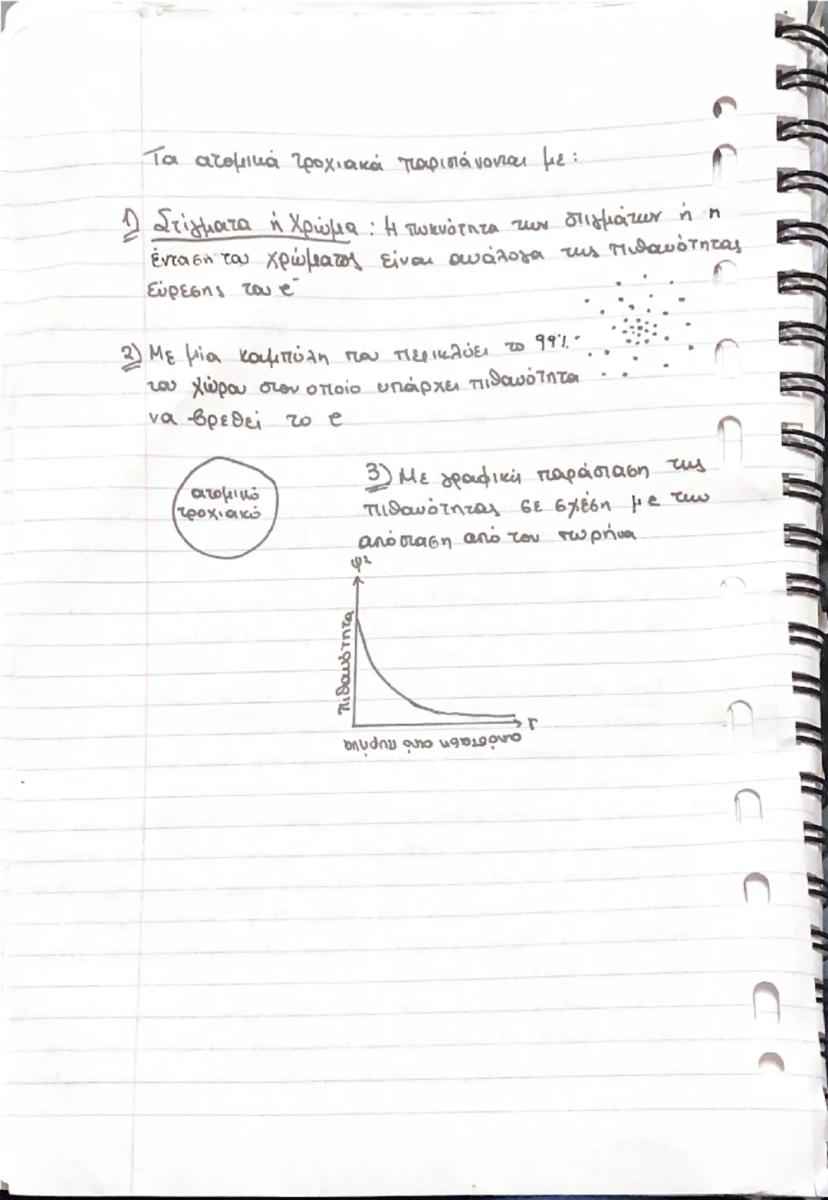 Τα ατομικά τροχιακά παριστάνονται με:
1) Στίγματα ή Χρώμα: Η πυκνότητα των στιγμάτων ή η
ένταση του χρώματος είναι ανάλογα της πιθανότητας
εύρεσης του e⁻
2) Με μία καμπύλη που περικλύει το 99%
του χώρου στον οποίο υπάρχει πιθανότητα
να βρεθεί το e
ατομικό
τροχιακό
3) Με γραφική παράσταση της
πιθανότητας σε σχέση με την
απόσταση από τον πυρήνα
ψ²
πιθανότητα
r
απόσταση από πυρήνα